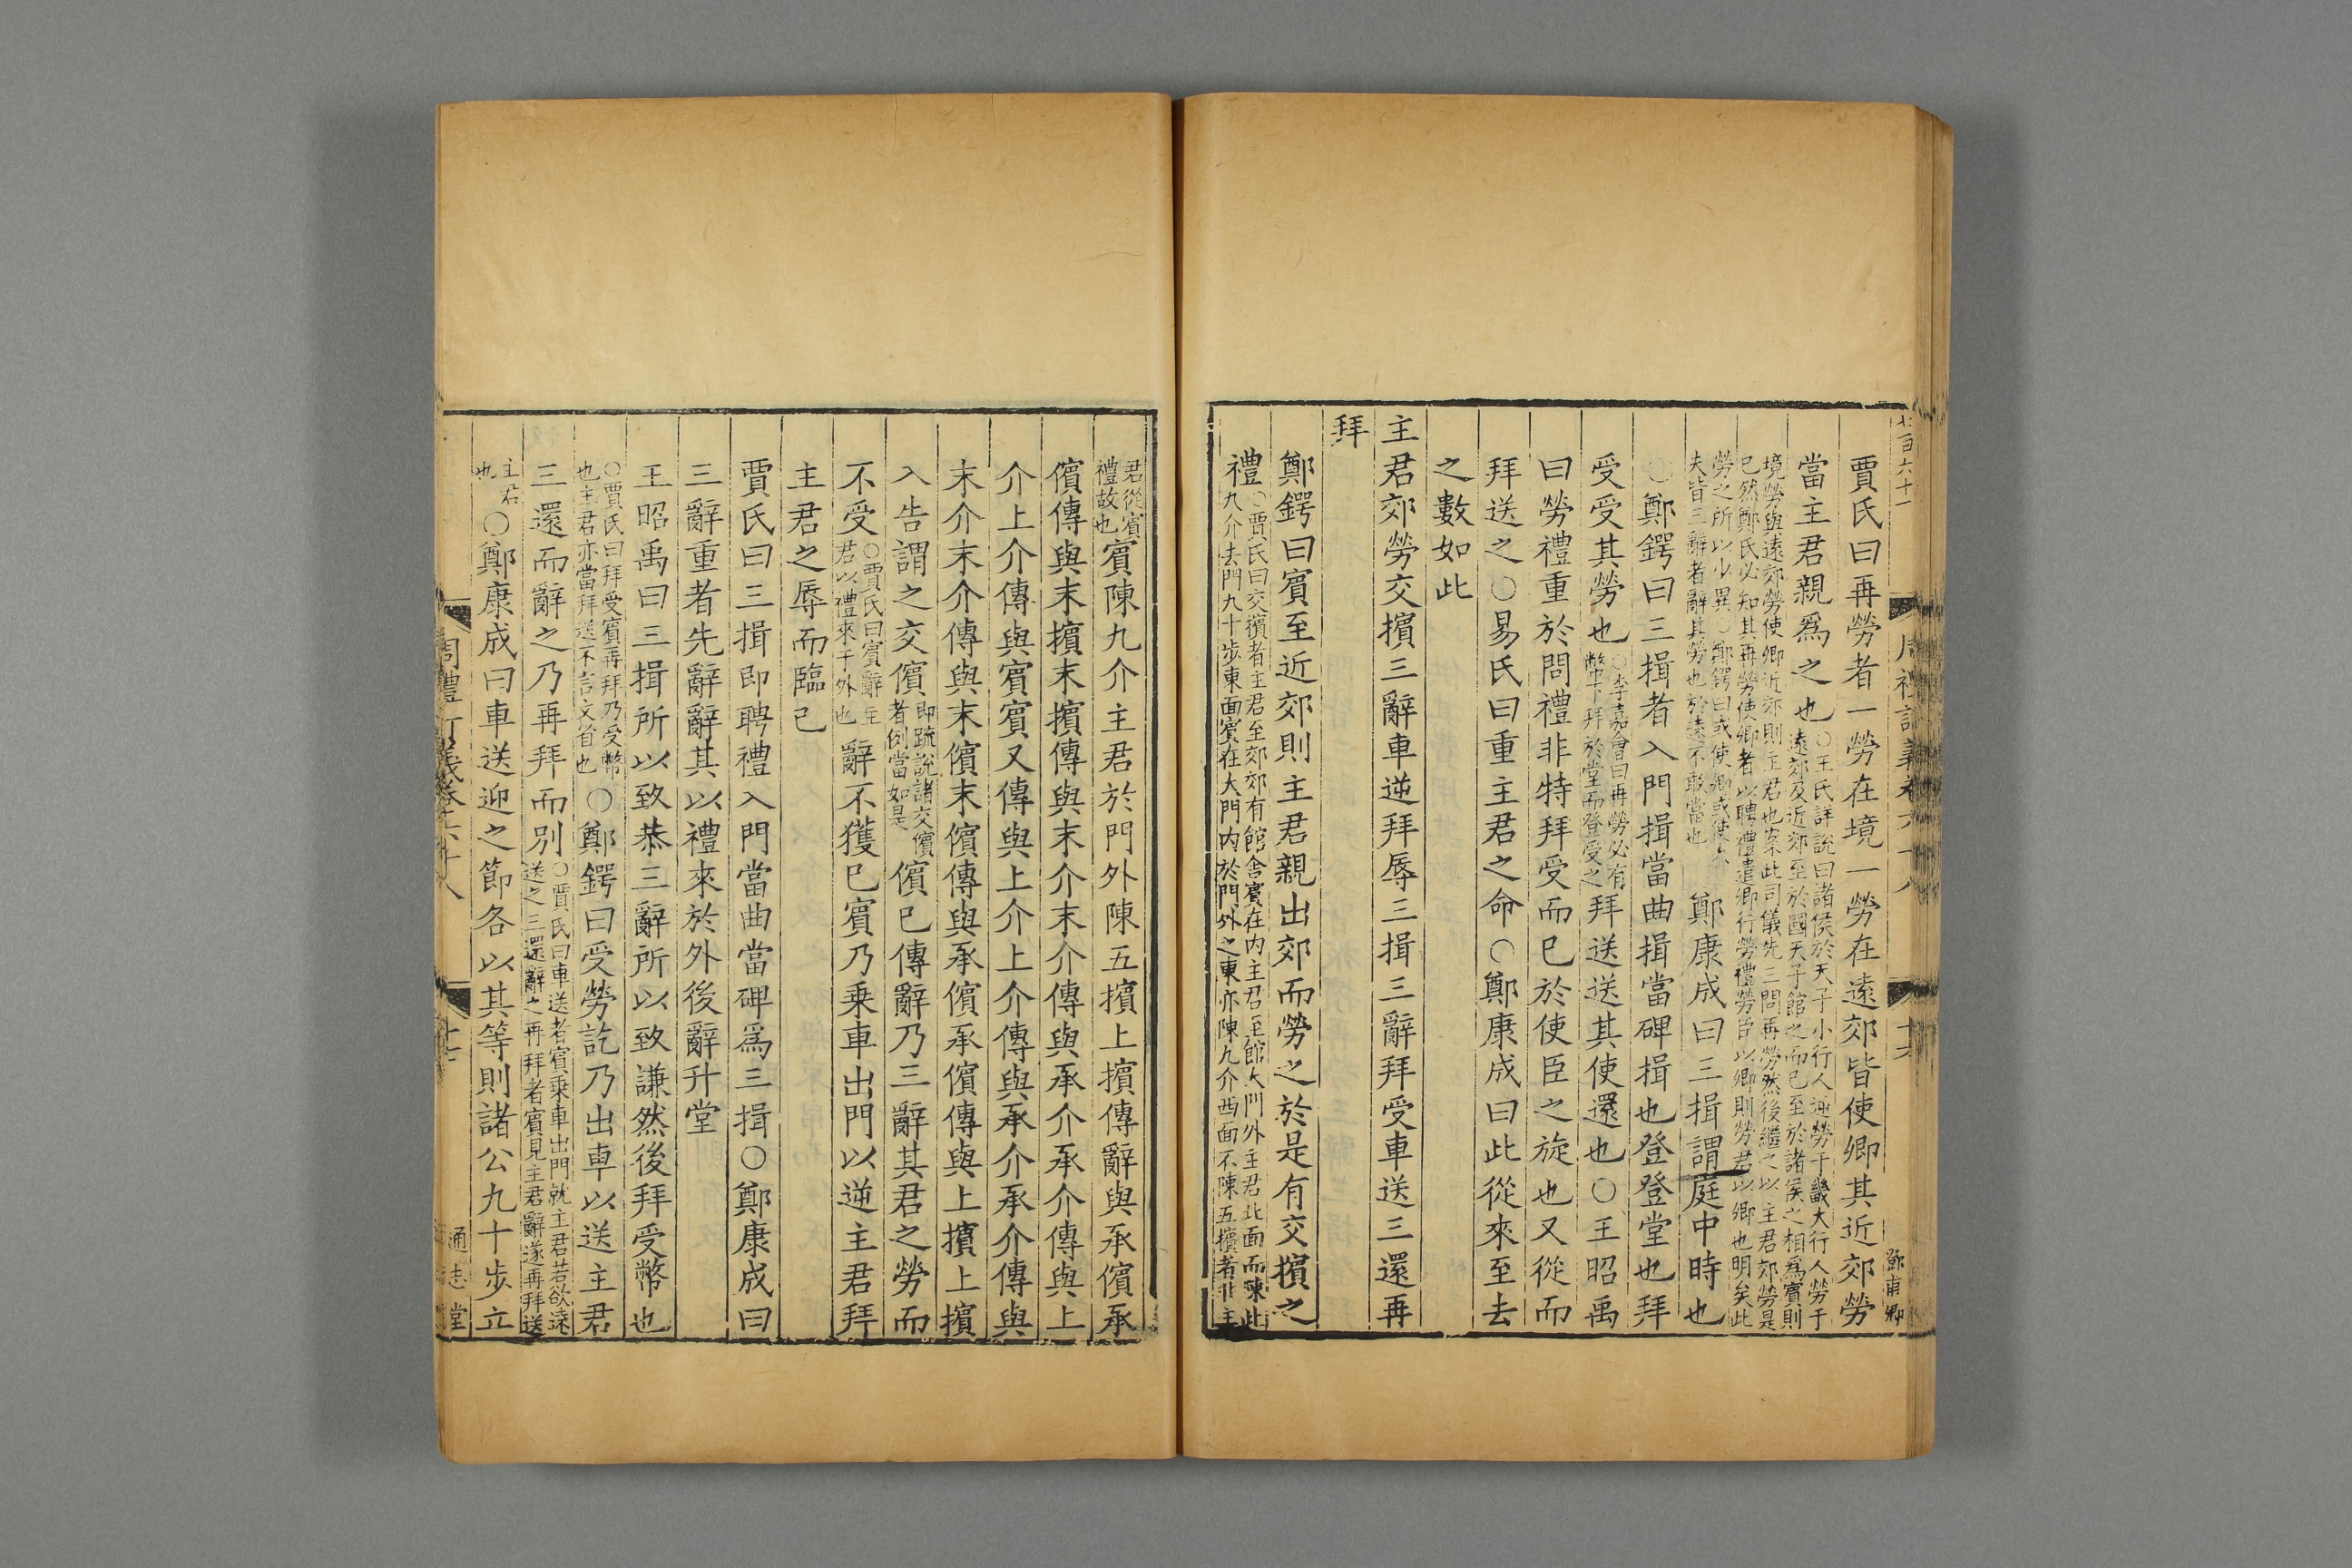 七百六十一
周禮訂義卷六十八
十六
鄧甫卿
賈氏曰再勞者一勞在境一勞在遠郊皆使卿其近郊勞
當主君親爲之也
○王氏詳說曰諸侯於天子小行人逆勞于畿大行人勞于
遠郊及近郊至於國天子館之而已至於諸侯之相爲賓則
境勞與遠郊勞使卿近郊則主君也案此司儀先三問再勞然後繼之以主君郊勞是
已然鄭氏必知其再勞使卿者以聘禮遣卿行勞禮勞臣以卿則勞君以卿也明矣此
勞之所以少異○鄭鍔曰或使卿或使大
夫皆三辭者辭其勞也於遠不敢當也
鄭康成曰三揖謂庭中時也
○鄭鍔曰三揖者入門揖當曲揖當碑揖也登登堂也拜
受受其勞也
○李嘉會曰再勞必有
幣下拜於堂而登受之
拜送送其使還也○王昭禹
曰勞禮重於問禮非特拜受而已於使臣之旋也又從而
拜送之○易氏曰重主君之命○鄭康成曰此從來至去
之數如此
主君郊勞交擯三辭車逆拜辱三揖三辭拜受車送三還再
拜
鄭鍔曰賓至近郊則主君親出郊而勞之於是有交擯之
禮
○賈氏曰交擯者主君至郊郊有館舍賓在內主君至館大門外主君北面而陳此
九介去門九十步東面賓在大門內於門外之東亦陳九介西面不陳五擯者非主
君從賓
禮故也
賓陳九介主君於門外陳五擯上擯傳辭與承儐承
儐傳與末擯末擯傳與末介末介傳與承介承介傳與上
介上介傳與賓賓又傳與上介上介傳與承介承介傳與
末介末介傳與末儐末儐傳與承儐承儐傳與上擯上擯
入告謂之交儐
即疏說諸交儐
者例當如是
儐已傳辭乃三辭其君之勞而
不受
○賈氏曰賓辭主
君以禮來于外也
辭不獲已賓乃乘車出門以逆主君拜
主君之辱而臨己
賈氏曰三揖即聘禮入門當曲當碑爲三揖○鄭康成曰
三辭重者先辭辭其以禮來於外後辭升堂
王昭禹曰三揖所以致恭三辭所以致謙然後拜受幣也
○賈氏曰拜受賓再拜乃受幣
也主君亦當拜送不言文省也
○鄭鍔曰受勞訖乃出車以送主君
三還而辭之乃再拜而別
○賈氏曰車送者賓乘車出門就主君若欲遠
送之三還辭之再拜者賓見主君辭遂再拜送
主君
也
○鄭康成曰車送迎之節各以其等則諸公九十步立
周禮訂義卷六十八
十七
通志堂